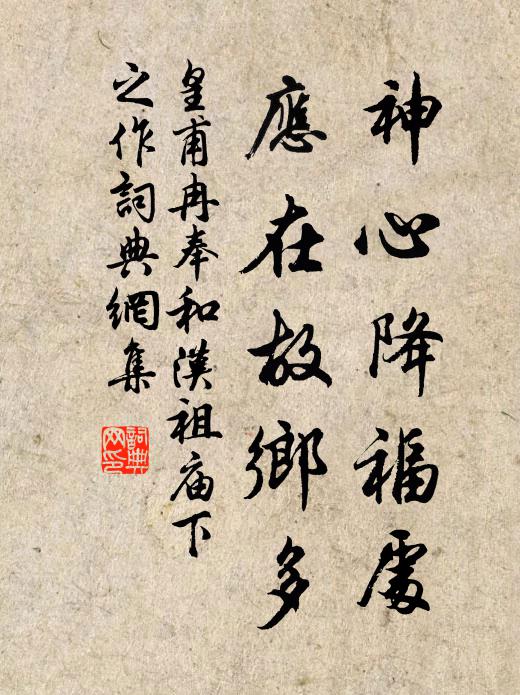 神心降福處
應在故鄉多
皇甫冉奉和漢祖庙下
之作詞典網集
詞典网印